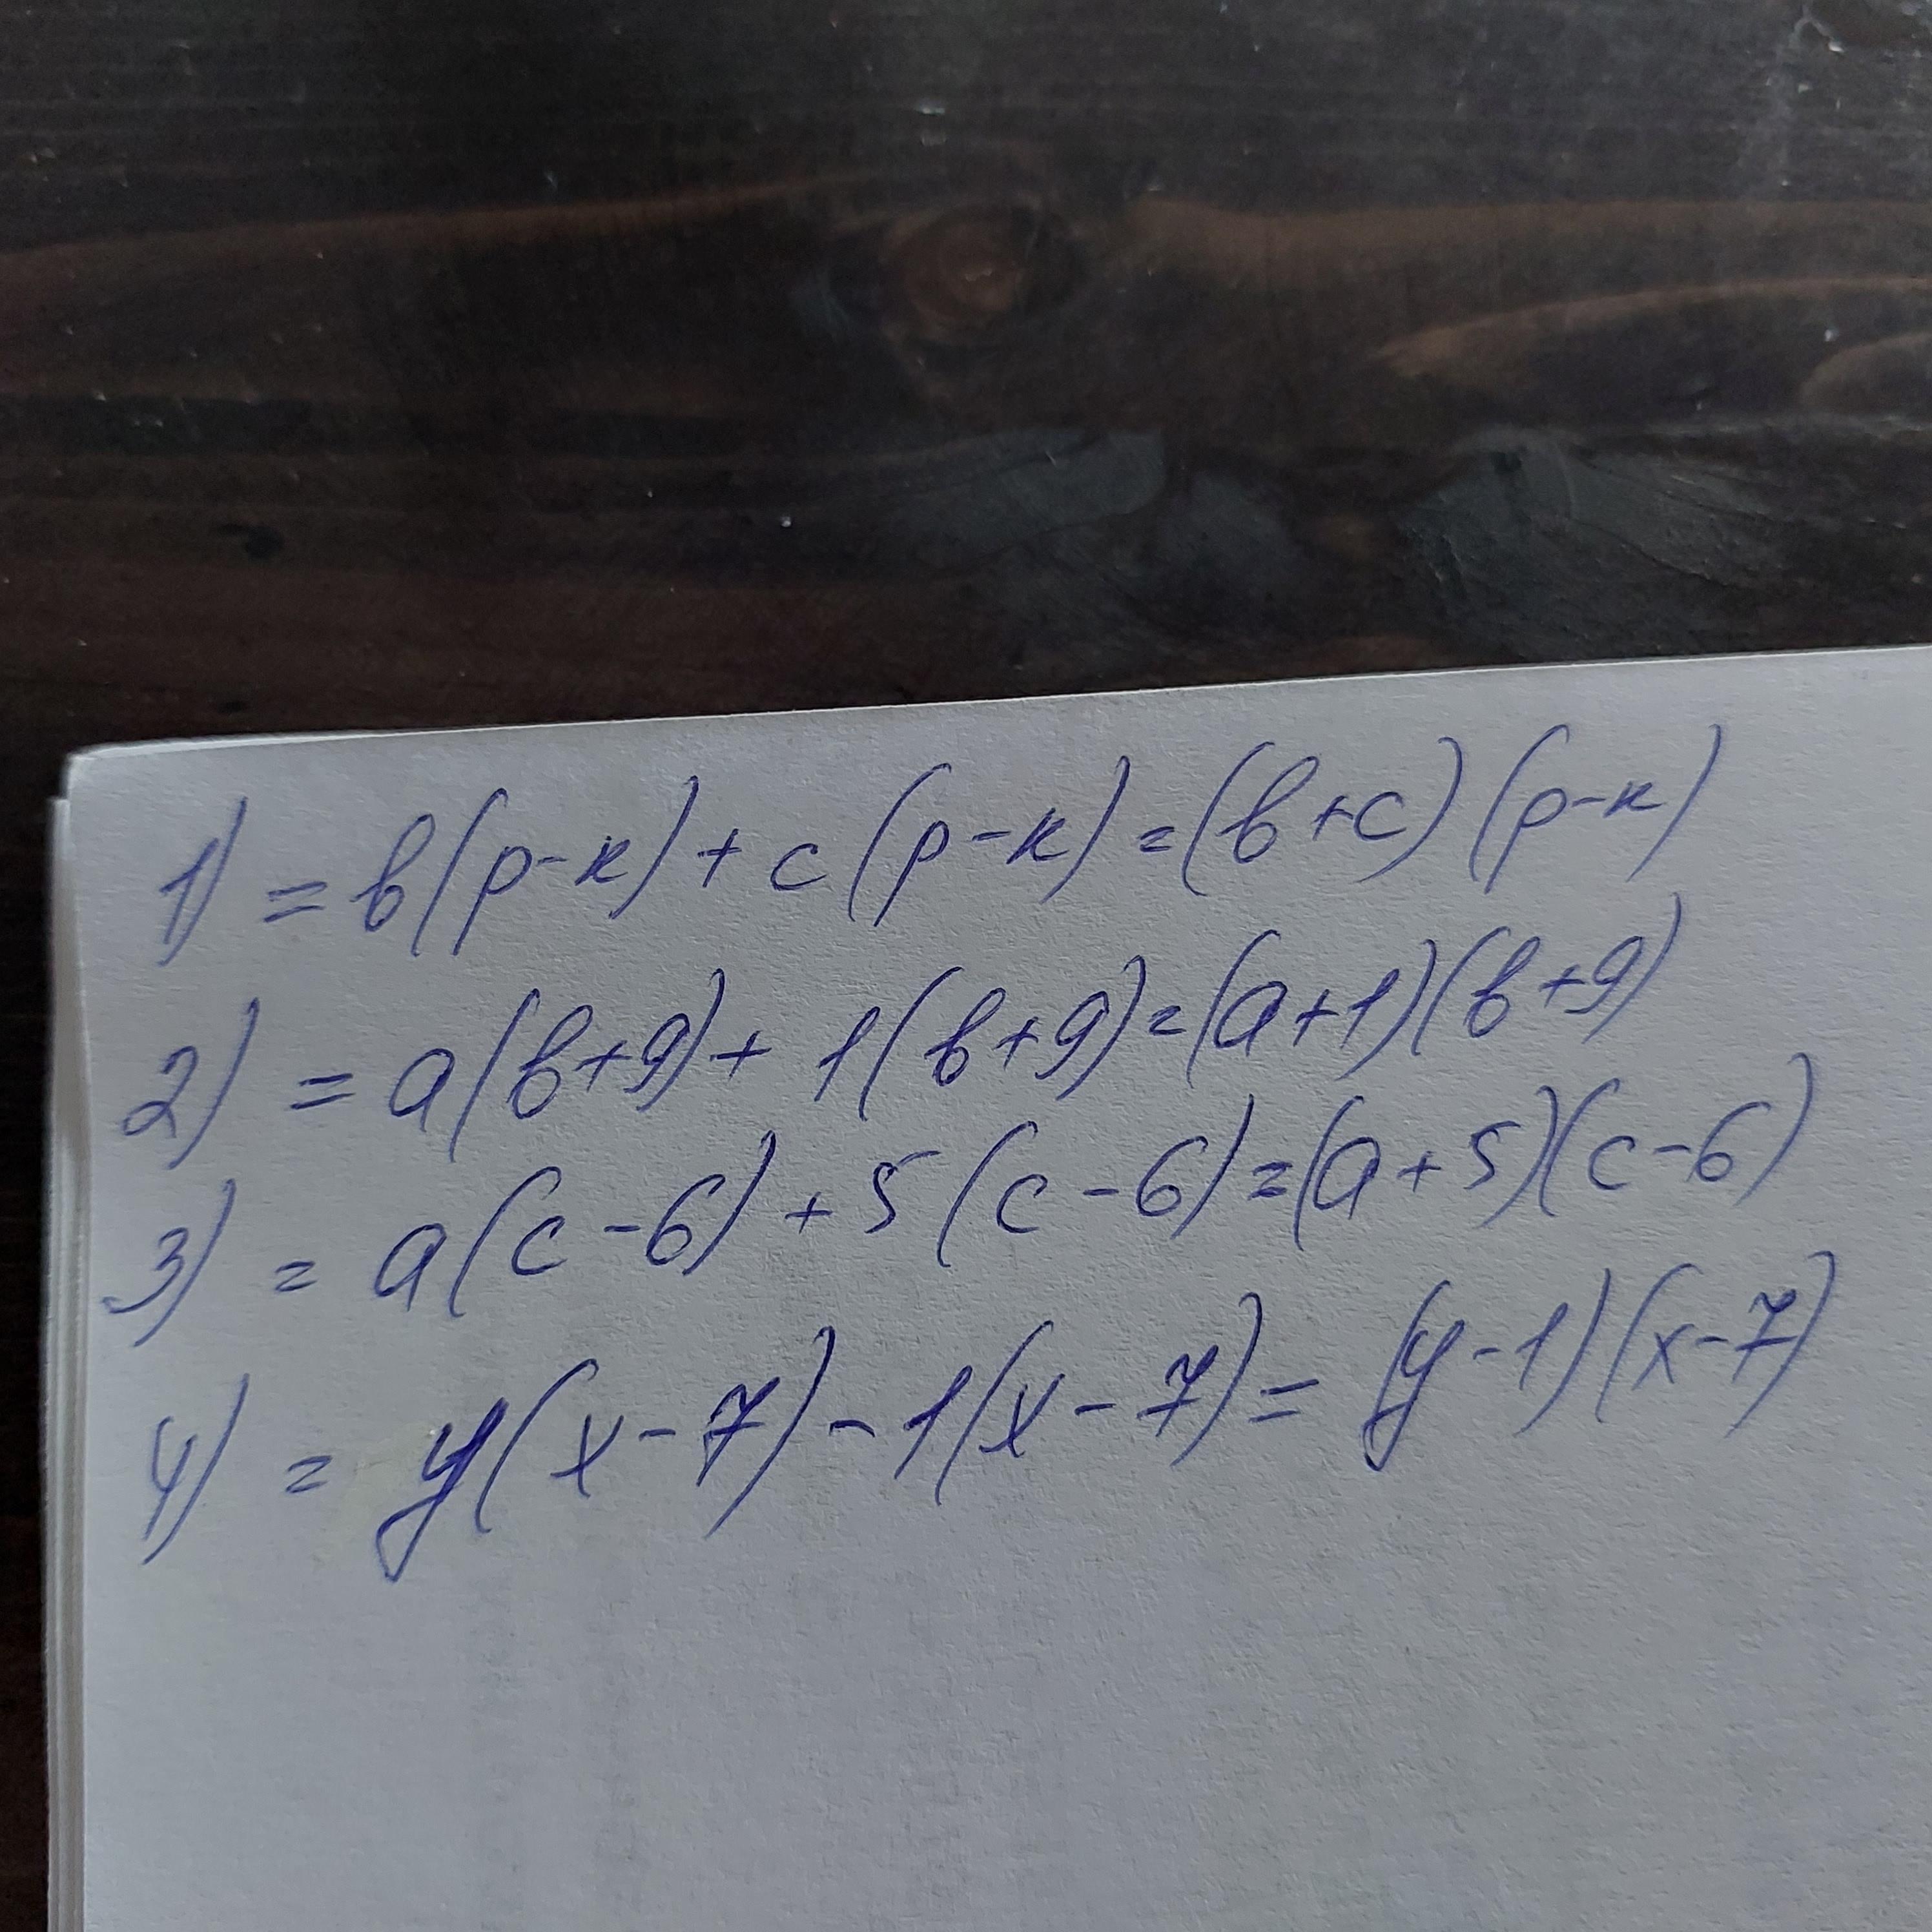 1) = в(p-к)+c(p-к)=(в+c)(p-к)
2) = a(в+9)+1(в+9)=(a+1)(в+9)
3) = a(c-6)+5(c-6)=(a+5)(c-6)
4) = y(x-7)-1(x-7)=(y-1)(x-7)